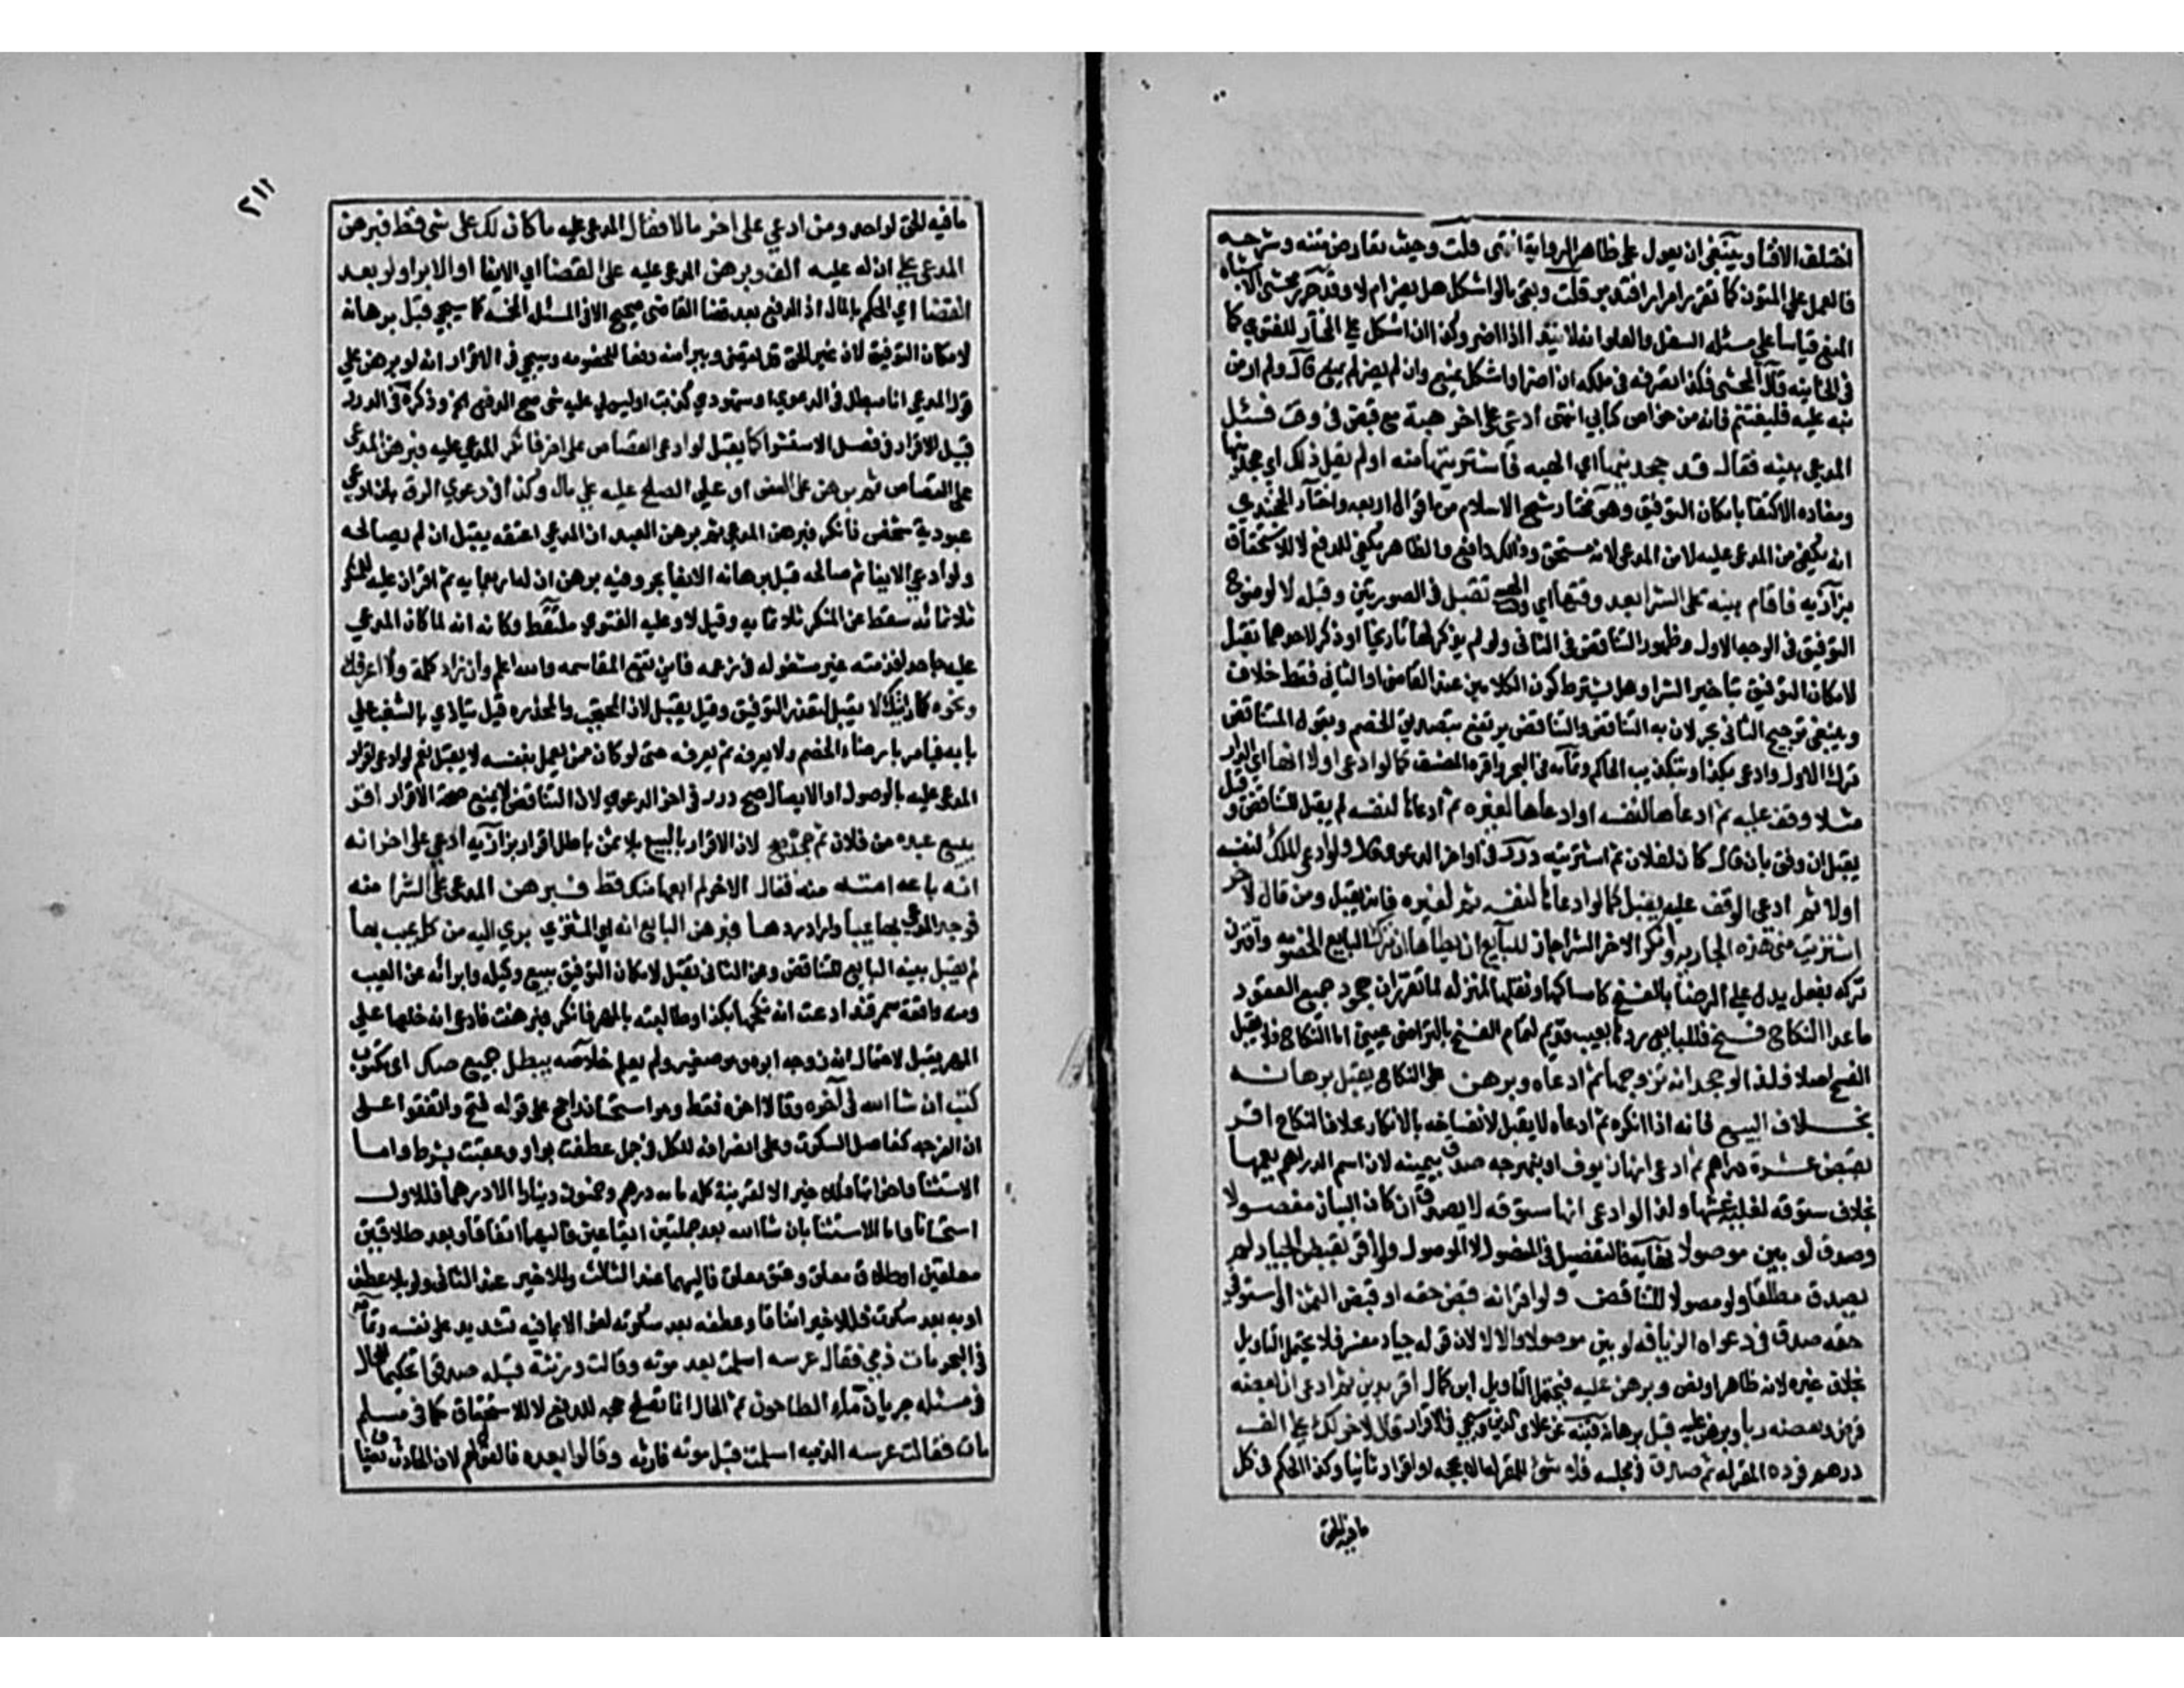 اختلف الافتا وينبغي ان يعول على ظاهر الرواية انتهى قلت وحيث تعارض متنه وشرحه
فالعمل على المتون كما تقرر مرارا فتدبر قلت وبقي مالو اشكل هل يضر ام لا وقد حرر محشي الاشباه
المنع قياسا على مسئلة السفل والعلو انه لا يتد اذا اضر وكذا ان اشكل على المختار للفتوى كما
في الخانية قال المحشي فكذا تصرفه في ملكه ان اضر او اشكل يمنع وان لم يضر لم يمنع قال ولم ار من
نبه عليه فليغتنم فانه من خواص كتابي انتهى ادعى على اخر هبة مع قبض في وقت فسئل
المدعي بينة فقال قد جحدنيها اي الهبه فاشتريتها منه او لم يقل ذلك اي جحدنيها
ومفاده الاكتفا بامكان التوفيق وهو مختار شيخ الاسلام من اقوال اربعه واختار الخجندي
انه يكفي من المدعى عليه لا من المدعي لانه مستحق وذاك دافع والظاهر يكفي للدفع لا للاستحقاق
بزازيه فاقام بينه على الشرا بعد وقتها اي الهبه تقبل في الصورتين وقبله لا لوضوح
التوفيق في الوجه الاول وظهور التناقض في الثاني ولو لم يذكر لهما تاريخا او ذكر لاحدهما تقبل
لامكان التوفيق بتاخير الشرا وهل يشترط كون الكلامين عند القاضي او الثاني فقط خلاف
وينبغي ترجيح الثاني بحر لان به التناقض والتناقض يرتفع بتصديق الخصم وبقول المتناقض
تركت الاول وادعى بكذا وبتكذيب الحاكم وتمامه في البحر واقره المصنف كما لو ادعى اولا انها اي الدار
مثلا وقف عليه ثم ادعاها لنفسه او ادعاها لغيره ثم ادعاها لنفسه لم يقبل للتناقض وقيل
يقبل ان وفق بان قال كان لفلان ثم اشتريته درر في اواخر الدعوى قال ولو ادعى الملك لنفسه
اولا ثم ادعى الوقف عليه يقبل كما لو ادعاها لنفسه ثم لغيره فانه يقبل ومن قال لاخر
اشتريت مني هذه الجاريه وانكر الاخر الشرا جاز للبايع ان يطاها ان ترك البايع الخصومه واقترن
تركه بفعل يدل على الرضا بالفسخ كامساكها ونقلها لمنزله لما تقرر ان جحود جميع العقود
ما عدا النكاح فسخ فللبايع ردها بعيب قديم لتمام الفسخ بالتراضي عيني اما النكاح فلا يقبل
الفسخ اصلا فلذا لو جحد انه تزوجها ثم ادعاه وبرهن على النكاح يقبل برهانه
بخلاف البيع فانه اذا انكره ثم ادعاه لا يقبل لانفساخه بالانكار بخلاف النكاح اقر
بقبض عشرة دراهم ثم ادعى انها زيوف او نبهرجه صدق بيمينه لان اسم الدراهم يعمها
بخلاف ستوقه لغلبة غشها ولذا لو ادعى انها ستوقه لا يصدق ان كان البيان مفصولا
وصدق لو بين موصولا نهاية فالتفصيل في المفصول لا الموصول ولو اقر بقبض الجياد لم
يصدق مطلقا ولو موصولا للتناقض ولو اقر انه قبض حقه او قبض الثمن او استوفى
حقه صدق في دعواه الزيافه لو بين موصولا والا لا لان قوله جياد مفسر فلا يحتمل التاويل
بخلاف غيره لانه ظاهر او نص وبرهن عليه فيحتمل التاويل ابن كمال اقر بدين ثم ادعى ان بعضه
قرض وبعضه ربا وبرهن عليه قبل برهانه قنيه عن علاء الدين وسيجي في الاقرار قال لاخر لك علي الف
درهم فرده المقر له ثم صدقه في مجلسه فلا شي للمقر له الا بحجه او اقرار ثانيا وكذا الحكم في كل
ما فيه الحق
٢١٢
ما فيه الحق لواحد ومن ادعى على اخر مالا فقال المدعى عليه ما كان لك علي شي قط فبرهن
المدعي على ان له عليه الف وبرهن المدعى عليه على القضا اي الايفا او الابرا ولو بعد
القضا اي الحكم بالمال اذ الدفع بعد قضا القاضي صحيح الا في المسئله المخمسه كما سيجي قبل برهانه
لامكان التوفيق لان غير الحق قد يقضى ويبرا منه دفعا للخصومه وسيجي في الاقرار انه لو برهن على
قول المدعي انا مبطل في الدعوى او شهودي كذبت او ليس لي عليه شي صح الدفع الخ وذكره في الدرر
قبيل الاقرار في فصل الاستشرا كما يقبل لو ادعى القصاص على اخر فانكر المدعى عليه فبرهن المدعي
على القصاص ثم برهن على العفو او على الصلح عليه على مال وكذا في دعوى الرق بان ادعى
عبودية شخص فانكر فبرهن المدعي ثم برهن العبد ان المدعي اعتقه يقبل ان لم يصالحه
ولو ادعى الايفا ثم صالحه قبل برهانه على الايفا بحر وفيه برهن ان له اربعمايه ثم اقر ان عليه للمنكر
ثلاثمائه سقط عن المنكر ثلاثمايه وقيل لا وعليه الفتوى ملتقط وكانه انه لما كان المدعى
عليه جاحدا فذمته غير مشغوله في زعمه فاين تقع المقاصه والله اعلم وان زاد كلمة ولا اعرفك
ونحوه كما رايتك لا يقبل لتعذر التوفيق وقيل يقبل لان المحتجب والمخدره قد يتاذى بالشغب على
بابه فيامر بارضاء الخصم ولا يعرفه ثم يعرفه حتى لو كان ممن يعمل بنفسه لا يقبل نعم لو ادعى اقرار
المدعى عليه بالوصول او الايصال صح درر في اخر الدعوى لان التناقض لا يمنع صحة الاقرار اقر
ببيع عبده من فلان ثم جحده صح لان الاقرار بالبيع بلا ثمن باطل اقرار بزازيه ادعى على اخر انه
انه باعه امته منه فقال الاخر لم ابعها منك قط فبرهن المدعي على الشرا منه
فوجد المدعي بها عيبا واراد ردها فبرهن البايع انه اي المشتري بري اليه من كل عيب بها
لم يقبل بينه البايع للتناقض وعن الثاني تقبل لامكان التوفيق ببيع وكيله وابرائه عن العيب
ومنه واقعة سمرقند ادعت انه نكحها بكذا وطالبته بالمهر فانكر فبرهنت فادعى انه خلعها على
المهر يقبل لاحتمال انه زوجه ابوه وهو صغير ولم يعلم خلاصه يبطل جميع صك اي مكتوب
كتب ان شا الله في اخره وقالا اخره فقط وهو استحسان راجح على قوله فتح واتفقوا على
ان الفرجه كفاصل السكوت وعلى انصرافه للكل في جمل عطفت بواو وعقبت بشرط واما
الاستثنا فالاخير الا لقرينة كله مايه درهم وخمسون دينارا الا درهما فللاول
استحسانا واما الاستثنا بان شا الله بعد جملتين ايقاعيتين فاليهما اتفاقا وبعد طلاقين
معلقين او طلاق معلق وعتق معلق فاليهما عند الثالث وللاخير عند الثاني ولو بلا عطف
او به بعد سكوت فللاخير اتفاقا وعطفه بعد سكوته لغو الا بما فيه تشديد على نفسه وتمامه
في البحر مات ذمي فقال عرسه اسلمت بعد موته وقالت ورثته قبله صدقوا تحكيما للحال
في مسئله جريان ماء الطاحون ثم الحال انما تصلح حجه للدفع لا للاستحقاق كما في مسلم
مات فقالت عرسه الذميه اسلمت قبل موته فارثه وقالوا بعده فالقول لهم لان الحادث يضاف